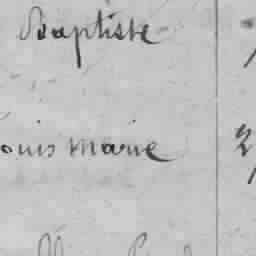 Baptiste
ouis marie 2